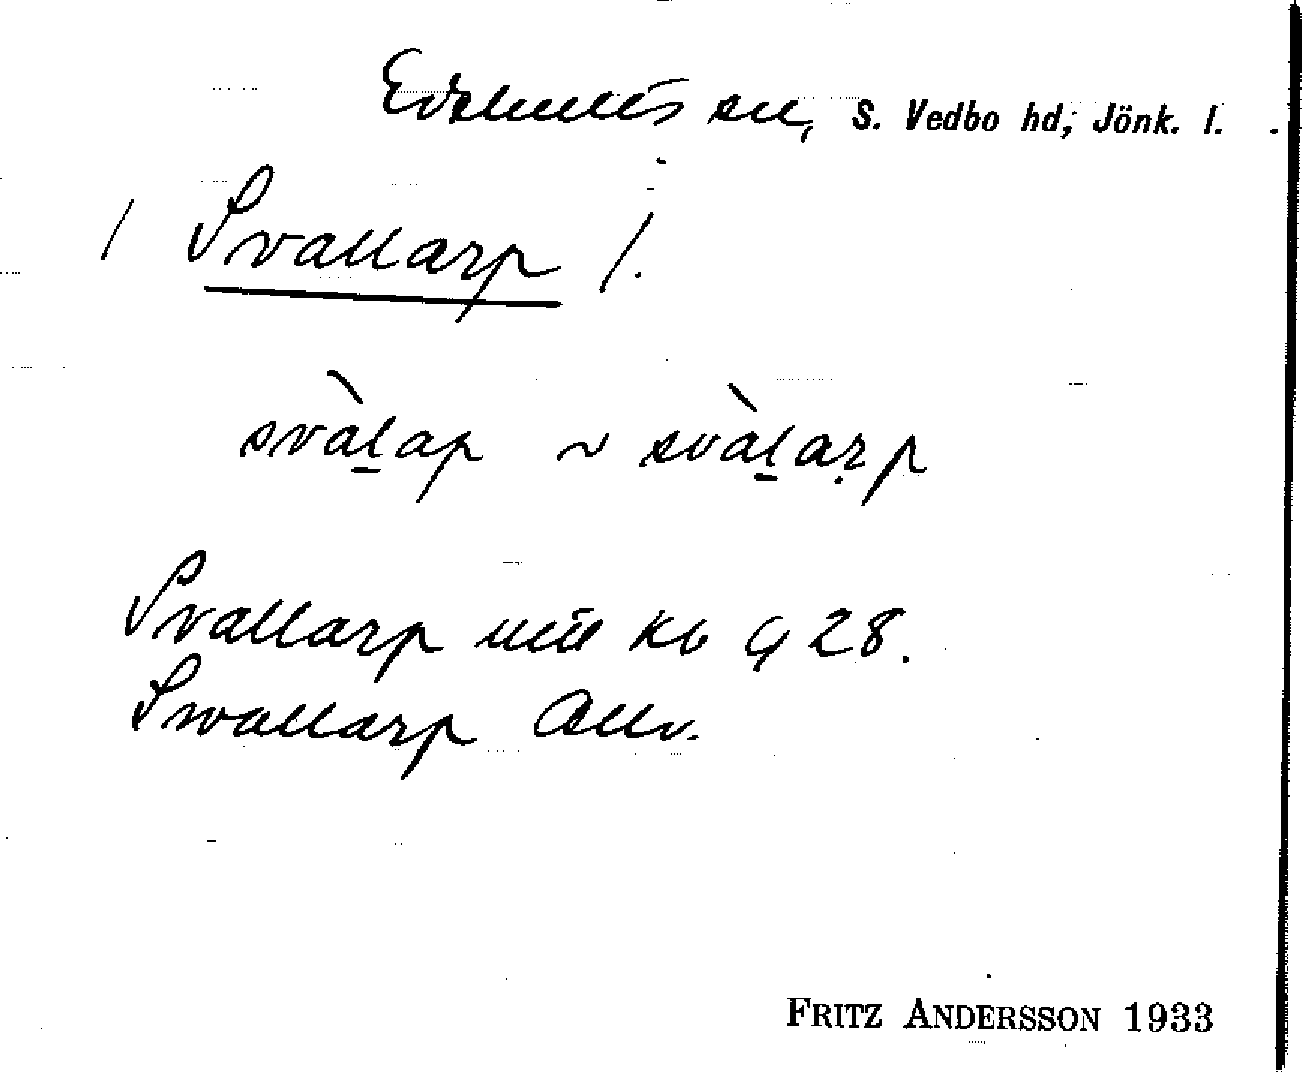 Edshults sn, S. Vedbo hd, Jönk. l.
/ Svallarp /.
svàl̠ap ~ svàl̠aṛp
Svallarp uttt kb 9 28.
Swallarp Allv.
FRITZ ANDERSSON 1933